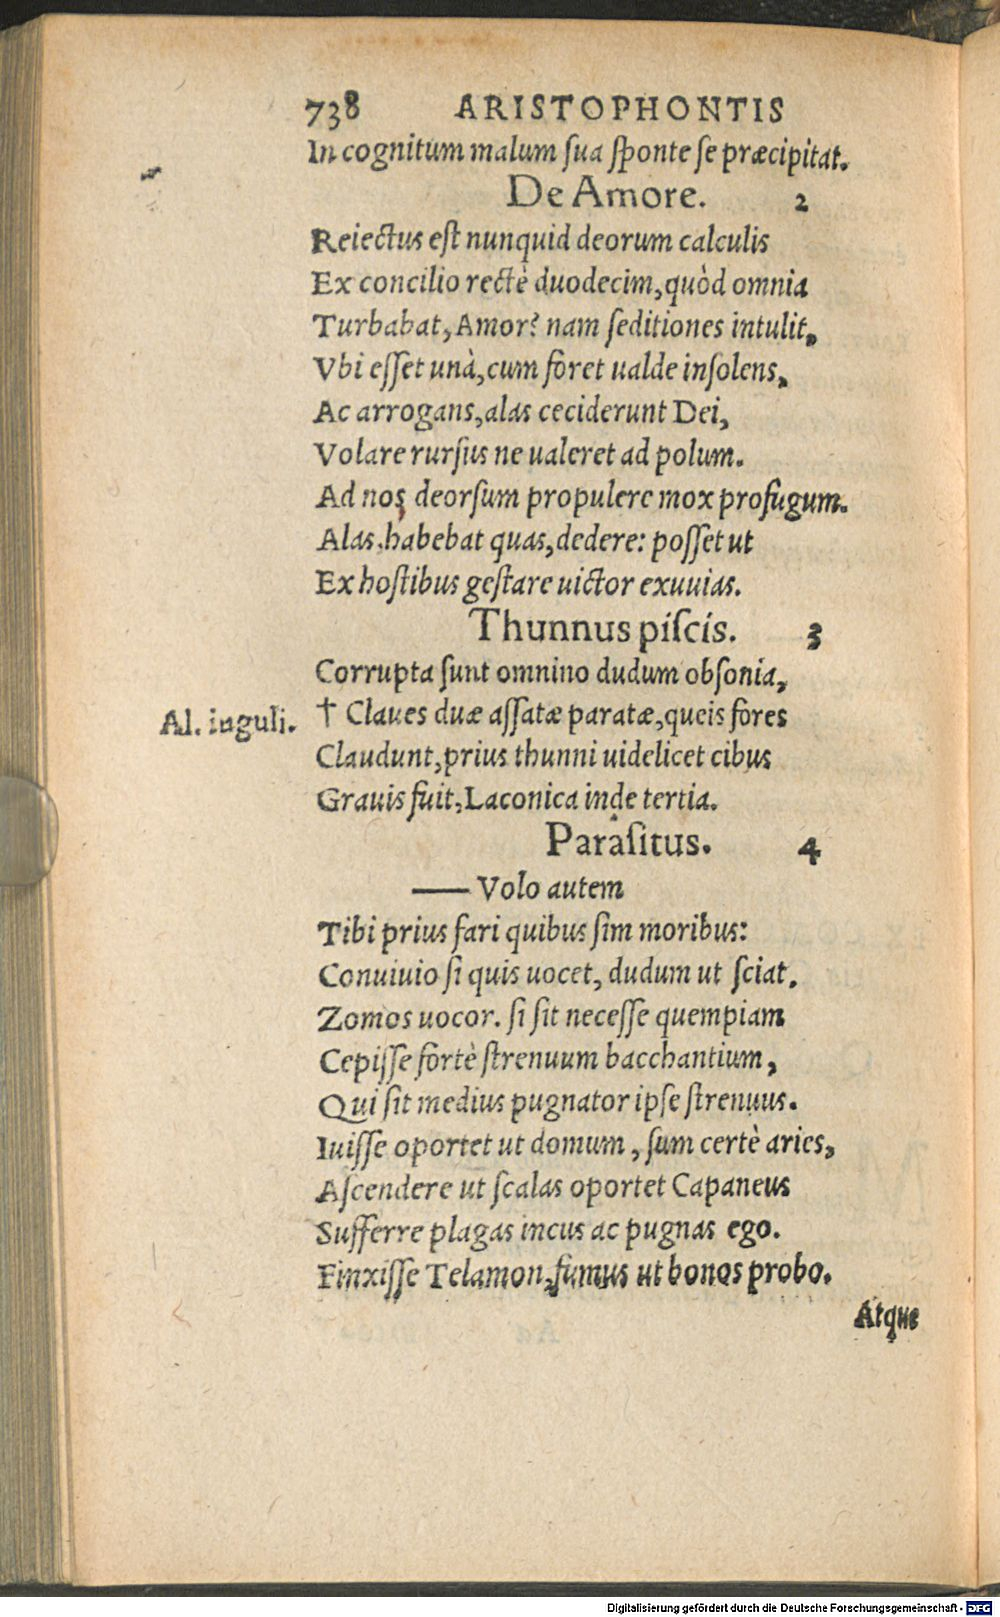 738 ARISTOPHONTIS
In cognitum malum sua sponte se præcipitat.
De Amore. 2
Reiectus est nunquid deorum calculis
Ex concilio rectè duodecim, quòd omnia
Turbabat, Amor? nam seditiones intulit,
Vbi esset unà, cum foret ualde insolens,
Ac arrogans, alas ceciderunt Dei,
Volare rursus ne ualeret ad polum.
Ad nos deorsum propulere mox profugum.
Alas, habebat quas, dedere: posset ut
Ex hostibus gestare uictor exuuias.
Thunnus piscis. 3
Corrupta sunt omnino dudum obsonia,
Al. iuguli. † Claues duæ assatæ paratæ, queis fores
Claudunt, prius thunni uidelicet cibus
Grauis fuit, Laconica inde tertia.
Parasitus. 4
— Volo autem
Tibi prius fari quibus sim moribus:
Conuiuio si quis uocet, dudum ut sciat.
Zomos uocor. si sit necesse quempiam
Cepisse fortè strenuum bacchantium,
Qui sit medius pugnator ipse strenuus.
Iuisse oportet ut domum, sum certè aries,
Ascendere ut scalas oportet Capaneus
Sufferre plagas incus ac pugnas ego.
Finxisse Telamon, fumus ut bonos probo.
Atque
Digitalisierung gefördert durch die Deutsche Forschungsgemeinschaft - DFG